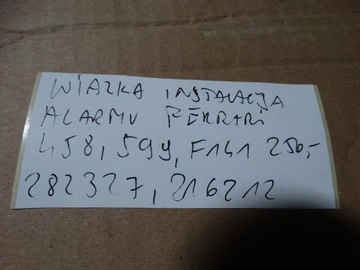 WIAZKA INSTALACJA
ALARMU FERRARI
458, 599, F141 250,-
282327, 216212